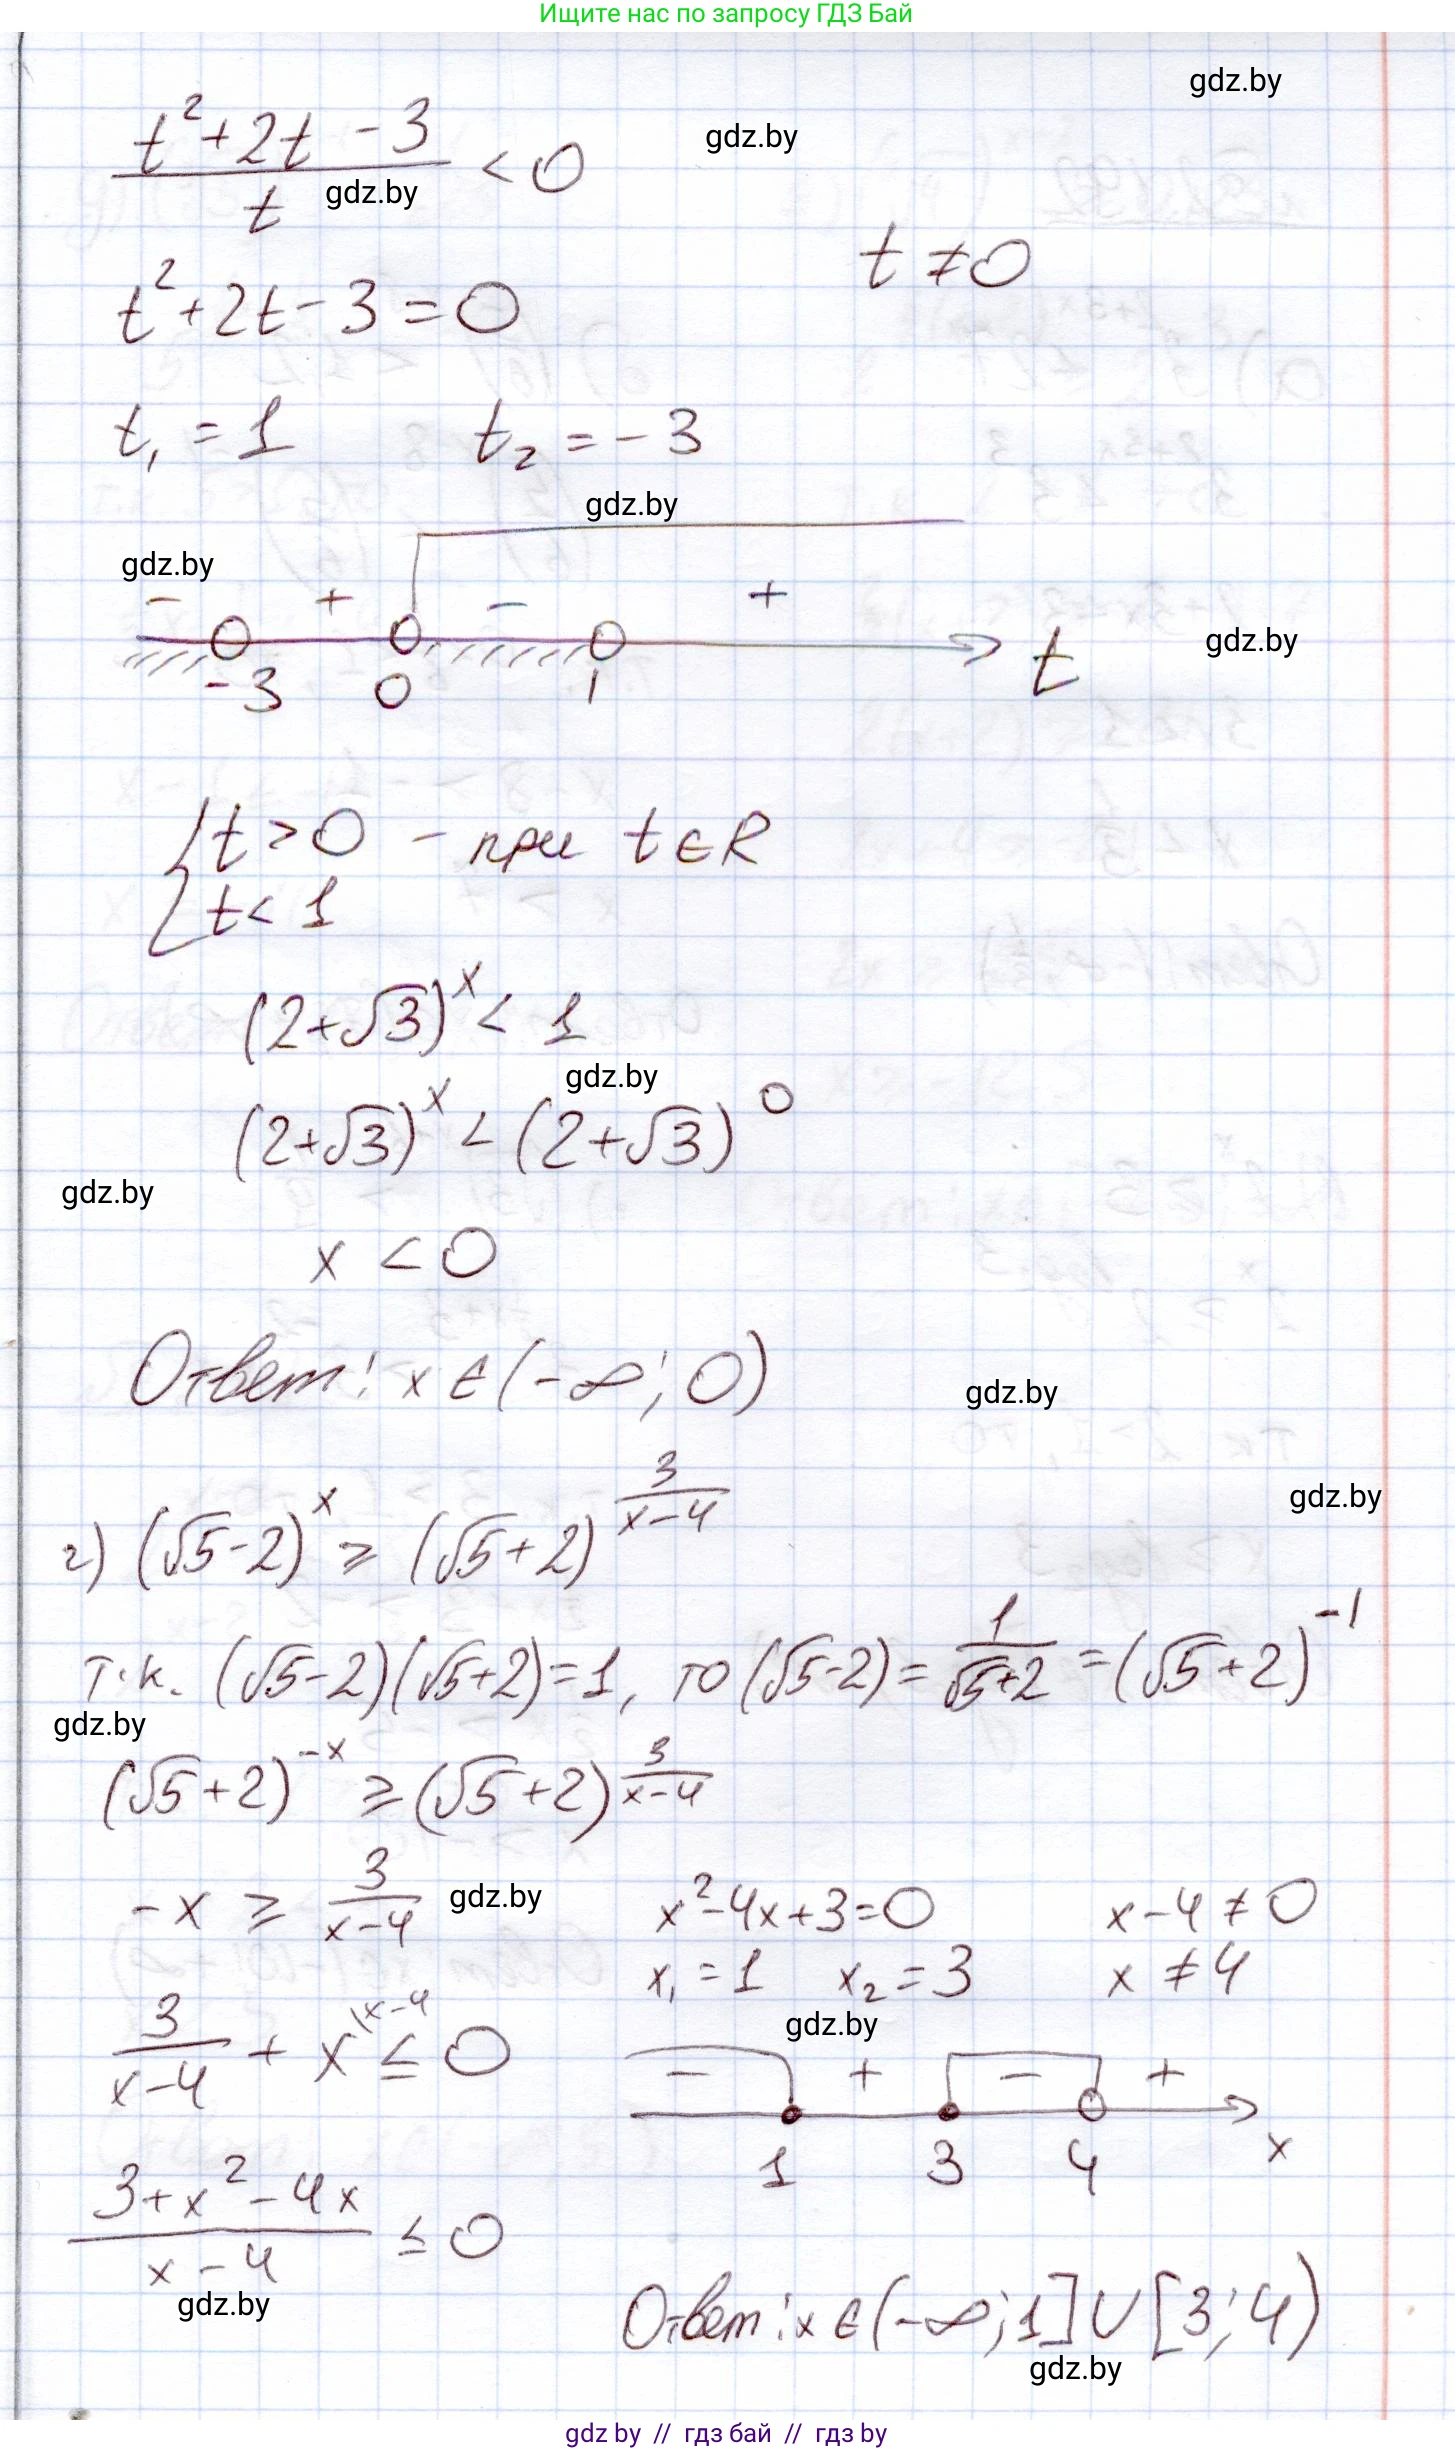 Ищите нас по запросу ГДЗ Бай
gdz.by
gdz.by
(t² + 2t - 3)/t < 0
gdz.by
t ≠ 0
t² + 2t - 3 = 0
t₁ = 1 t₂ = -3
gdz.by
gdz.by
- + - +
gdz.by
-3 0 1 t
{ t > 0 - при t ∈ R
t < 1
(2+√3)^x < 1
gdz.by
(2+√3)^x < (2+√3)^0
gdz.by
x < 0
Ответ: x ∈ (-∞; 0)
gdz.by
gdz.by
г) (√5-2)^x ≥ (√5+2)^(3/(x-4))
т.к. (√5-2)(√5+2)=1, то (√5-2) = 1/(√5+2) = (√5+2)^-1
gdz.by
(√5+2)^-x ≥ (√5+2)^(3/(x-4))
-x ≥ 3/(x-4)
gdz.by
x²-4x+3=0 x-4 ≠ 0
x₁ = 1 x₂ = 3 x ≠ 4
gdz.by
3/(x-4) + x^(x-4 ≤ 0
- + - +
1 3 4 x
(3+x²-4x)/(x-4) ≤ 0
gdz.by
Ответ: x ∈ (-∞; 1] ∪ [3; 4)
gdz.by
gdz by // гдз бай // гдз by